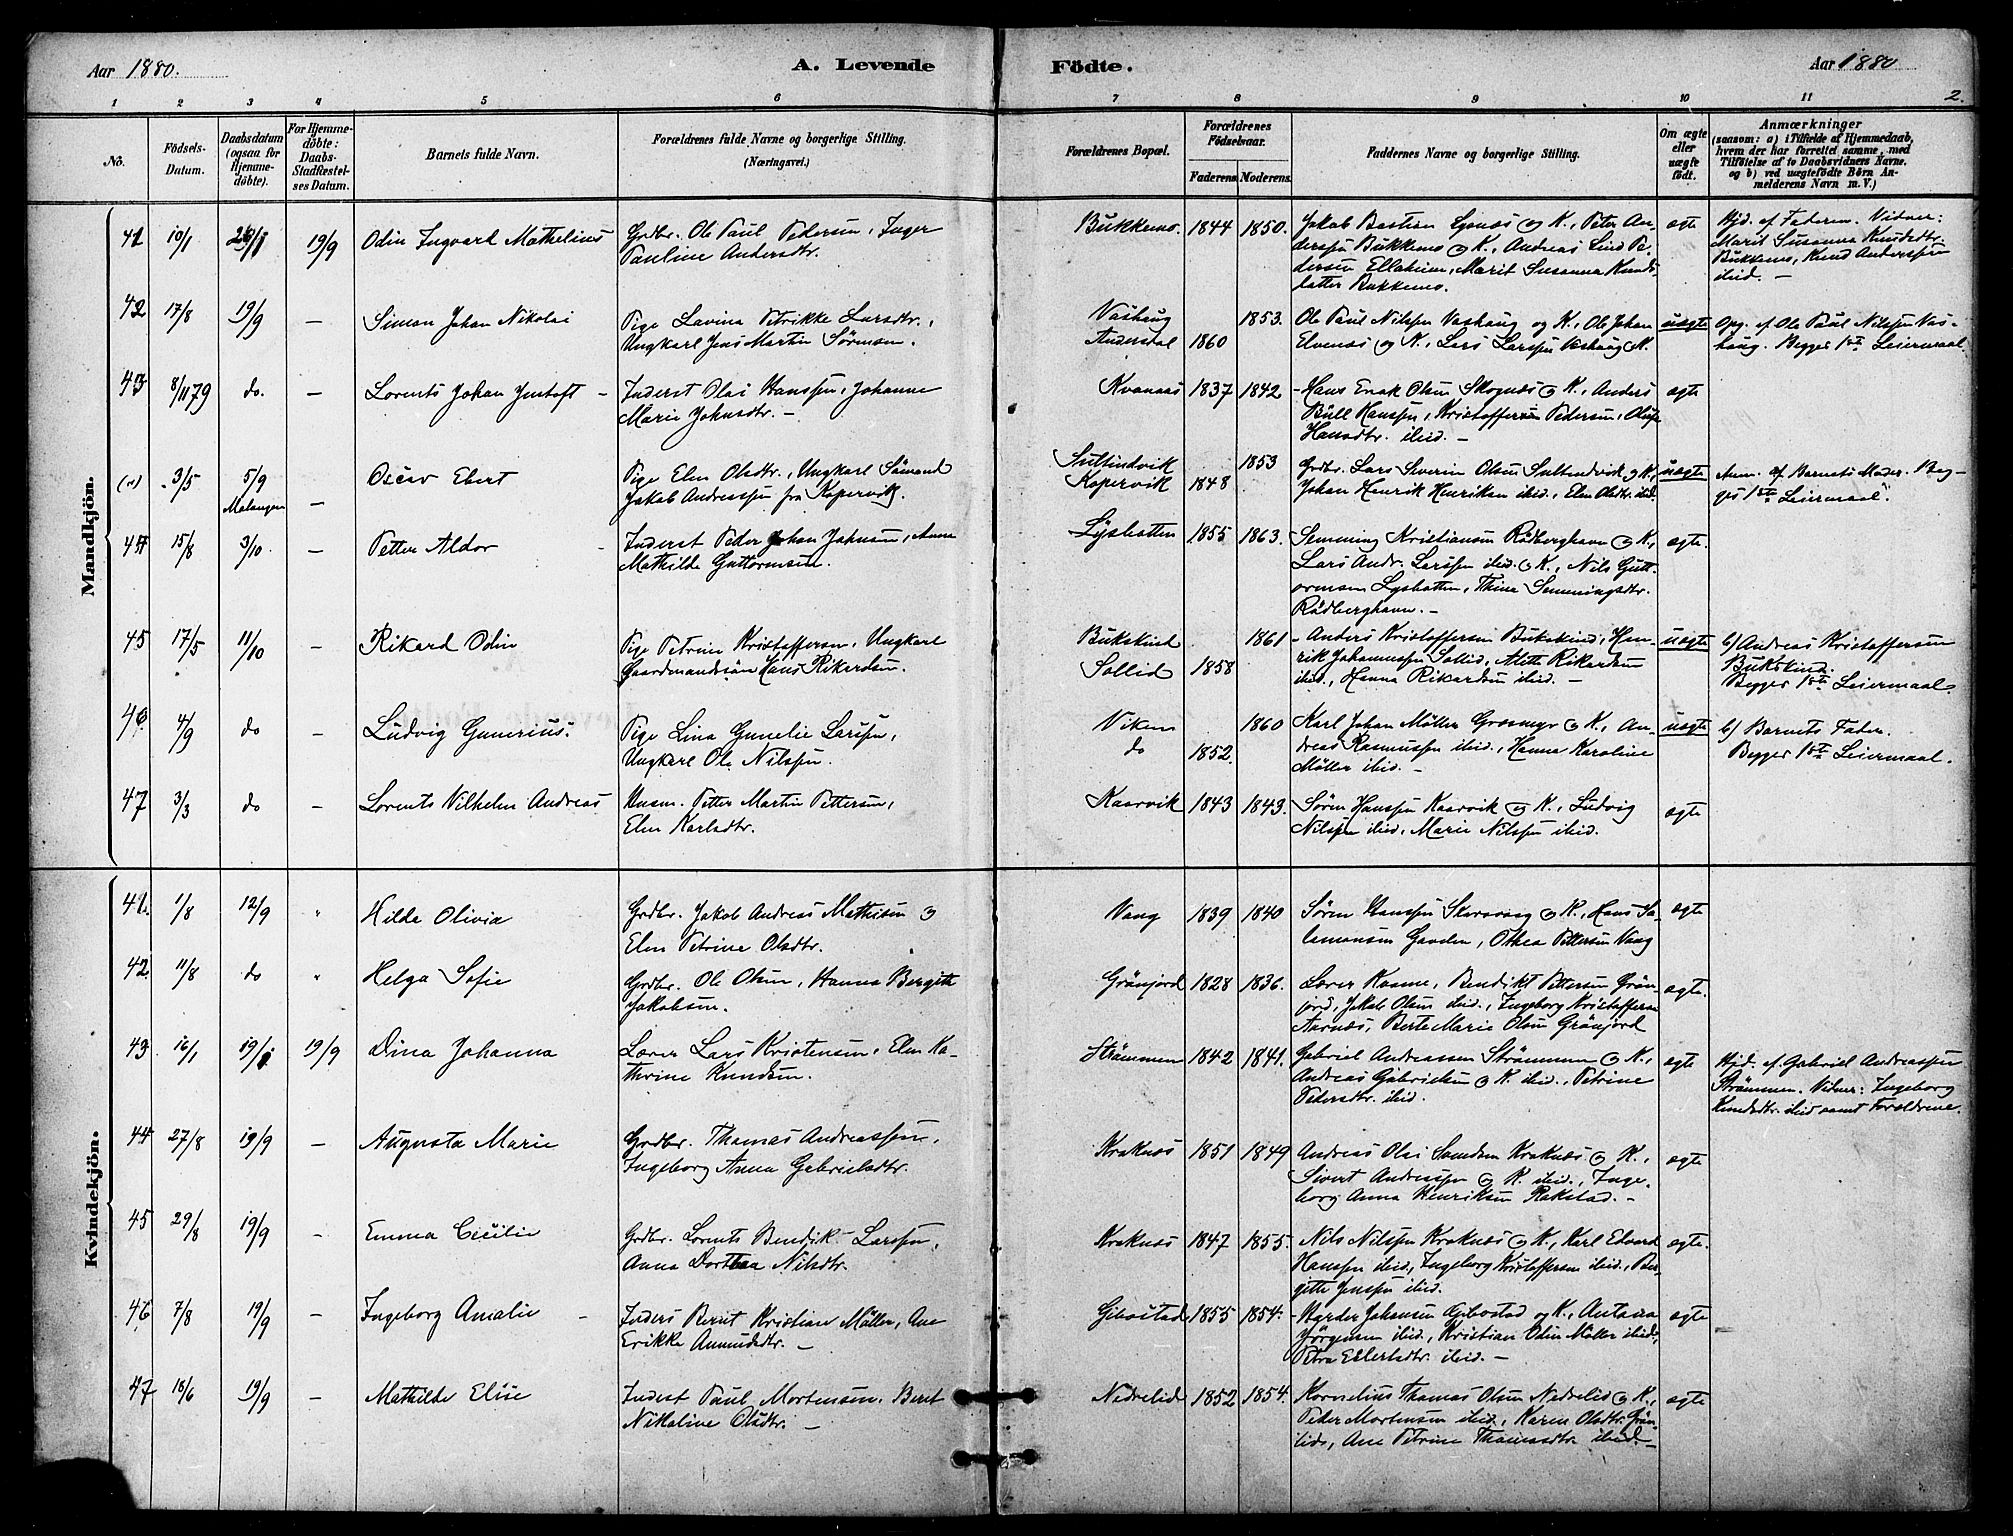 Aar 1880.
A. Levende Födte.
Aar 1880
2.
1 2 3 4 5 6 7 8 9 10 11
No.
Födsels-Datum.
Daabsdatum (ogsaa for Hjemme-döbte).
For Hjemme-döbte: Daabs-Stadfæstel-ses Datum.
Barnets fulde Navn.
Forældrenes fulde Navne og borgerlige Stilling.
(Næringsvei.)
Forældrenes Bopæl.
Forældrenes Födselsaar.
Faderens Moderens.
Faddernes Navne og borgerlige Stilling.
Om ægte eller uægte födt.
Anmærkninger
(saasom: a) i Tilfælde af Hjemmedaab,
hvem der har forrettet samme, med
Tilföielse af to Daabsvidners Navne,
og b) ved uægtefödte Börn An-
melderens Navn m. V.)
Mandkjön.
41 10/1 19/9 Odin Ingvard Mathelius Grdbr. Ole Paul Pedersen, Inger
Pauline Andersdtr.
Bukkemo. 1844 1850. Jakob Bastian Lysnæs og K., Peter An-
derssen Bukkemo og K., Andreas Lind Pe-
dersen Ellaheim, Marit Susanna Knuds-
datter Bukkemo.
ægte
Hjd. af Faderen. Vidner:
Marit Susanna Knudsdtr.
Bukkemo, Knud Anderssen
ibid. —
42 17/8 19/9 — Simon Johan Nikolai Pige Lavina Petrikke Larsdtr.,
Ungkarl Jens Martin Sörensen.
Vashaug 1853.
Andersdal 1860
Ole Paul Nilssen Vashaug og K., Ole Johan
Elvenæs og K., Lars Larssen Vashaug og K.
uægte
Opg. af Ole Paul Nilssen Vas-
haug. Begges 1ste Leiermaal.
43 8/11 79 do. — Lorents Johan Jentoft — Inderst Olai Hanssen, Johanne
Marie Johnsdtr. —
Kvanaas 1837 1842 — Hans Enok Olsen Skognæs og K., Anders
Büll Hanssen, Kristoffer Pedersen, Oluf
Hansdtr. ibid. —
ægte
3/5 5/9 Malangen — Oscar Ebert Pige Elen Olsdtr., Ungkarl Sämund
Jakob Andreassen fra Kopervik.
Sultindvik 1853
Kopervik 1848
Grdbr. Lars Severin Olsen Sultindvik og K.,
Johan Henrik Henriksen ibid., Elen Olsdtr. ibid.
uægte
Anm. af Barnets Moder. Beg-
ges 1ste Leiermaal.
44 15/8 3/10 — Petter Aldor — Inderst Peder Johan Johnsen, Anne
Mathilde Guttormsen.
Lysbotten 1855 1863. Semming Kristiansen Rödberghavn og K.,
Lars Andr. Larssen ibid. og K., Nils Gutt-
ormsen Lysbotten, Thina Semmingsdtr.
Rödberghavn. —
ægte.
45 17/5 11/10 — Rikard Odin Pige Petrine Kristoffersen, Ungkarl
Gaardmandssön Hans Rikardsen.
Bukskind 1861
Sollid 1858
— Anders Kristoffersen Bukskind, Hen-
rik Johannessen Sollid, Alette Rikardsen
ibid., Hanna Rikardsen ibid. —
uægte
b) Andreas Kristoffersen
Bukskind.
Begges 1ste Leiermaal
46 4/9 do — Ludvig Gunerius. Pige Lina Gunelie Larssen,
Ungkarl Ole Nilssen.
Viken 1860
do 1852.
Karl Johan Möller Grasmyr og K., An-
dreas Rasmussen ibid., Hanna Karoline
Möller ibid. —
uægte
b) Barnets Fader.
Begges 1ste Leiermaal.
47 3/3 do — Lorents Vilhelm Andreas Husm. Petter Martin Pettersen,
Elen Karlsdtr.
Kaarvik 1843 1843. Sören Hanssen Kaarvik og K., Ludvig
Nilssen ibid., Marie Nilssen ibid.
ægte
Kvindekjön.
41. 1/8 12/9 " Hilda Olivia Grdbr. Jakob Andreas Mathisen og
Elen Petrine Olsdtr.
Vang 1839 1840 Sören Hanssen Skarsvaag og K., Hans Sa-
lamonsen Gaarden, Othea Pettersen Vang
ægte
42. 11/8 do " Helga Sofie Grdbr. Ole Olsen, Hanna Bergitte
Jakobsen.
Grönjord 1828 1836. Lærer Kaasne, Bendikt Pettersen Grön-
jord, Jakob Olsen ibid., Ingeborg Kristoffersen
Aarnæs, Berte Marie Olsen Grönjord
ægte.
43 16/1 19/1 19/9 Dina Johanna Lærer Lars Kristensen, Elen Ka-
thrine Knudsen.
Strömmen 1842 1841. Gabriel Andreassen Strömmen og K.,
Andreas Gabrielsen og K. ibid., Petrine
Pedersdtr. ibid.
ægte
Hjd. af Gabriel Andreassen
Strömmen. Vidner: Ingeborg
Knudsdtr. ibid samt Forældrene.
44 27/8 19/9 — Augusta Marie Grdbr. Thomas Andreassen,
Ingeborg Anna Gabrielsdtr.
Kraknæs 1851 1849 Andreas Olai Kraknæs og K.,
Sivert Andreassen og K. ibid., Inge-
borg Anna Henriksen Rakstad. —
ægte
45 29/8 19/9 - Emma Cecilie Grdbr. Lorents Bendik Larssen,
Anna Dorthea Nilsdtr.
Kraknæs 1847 1855. Nils Nilssen Kraknæs og K., Karl Edvard
Hanssen ibid., Ingeborg Kristoffersen ibid., Ber-
gitte Jenssen ibid.
ægte.
46 7/8 19/9 — Ingeborg Amalie — Inders Bernt Kristian Möller, Ane
Erikke Amundsdtr. —
Gibostad 1855 1854. — Johansen Gibostad og K., Antona
Jörgensen ibid., Kristian Odin Möller ibid.,
Petra Ellertsdtr. ibid. —
ægte
47 18/6 19/9 — Mathilde Elise Inderst Paul Mortensen, Beret
Nikoline Olsdtr. —
Nedrelid 1852 1854. Kornelius Thomas Olsen Nedrelid og K.,
Peder Mortensen ibid., Karen Olsdtr. Grön-
lid, Ane Petrine Thomasdtr. ibid. —
ægte